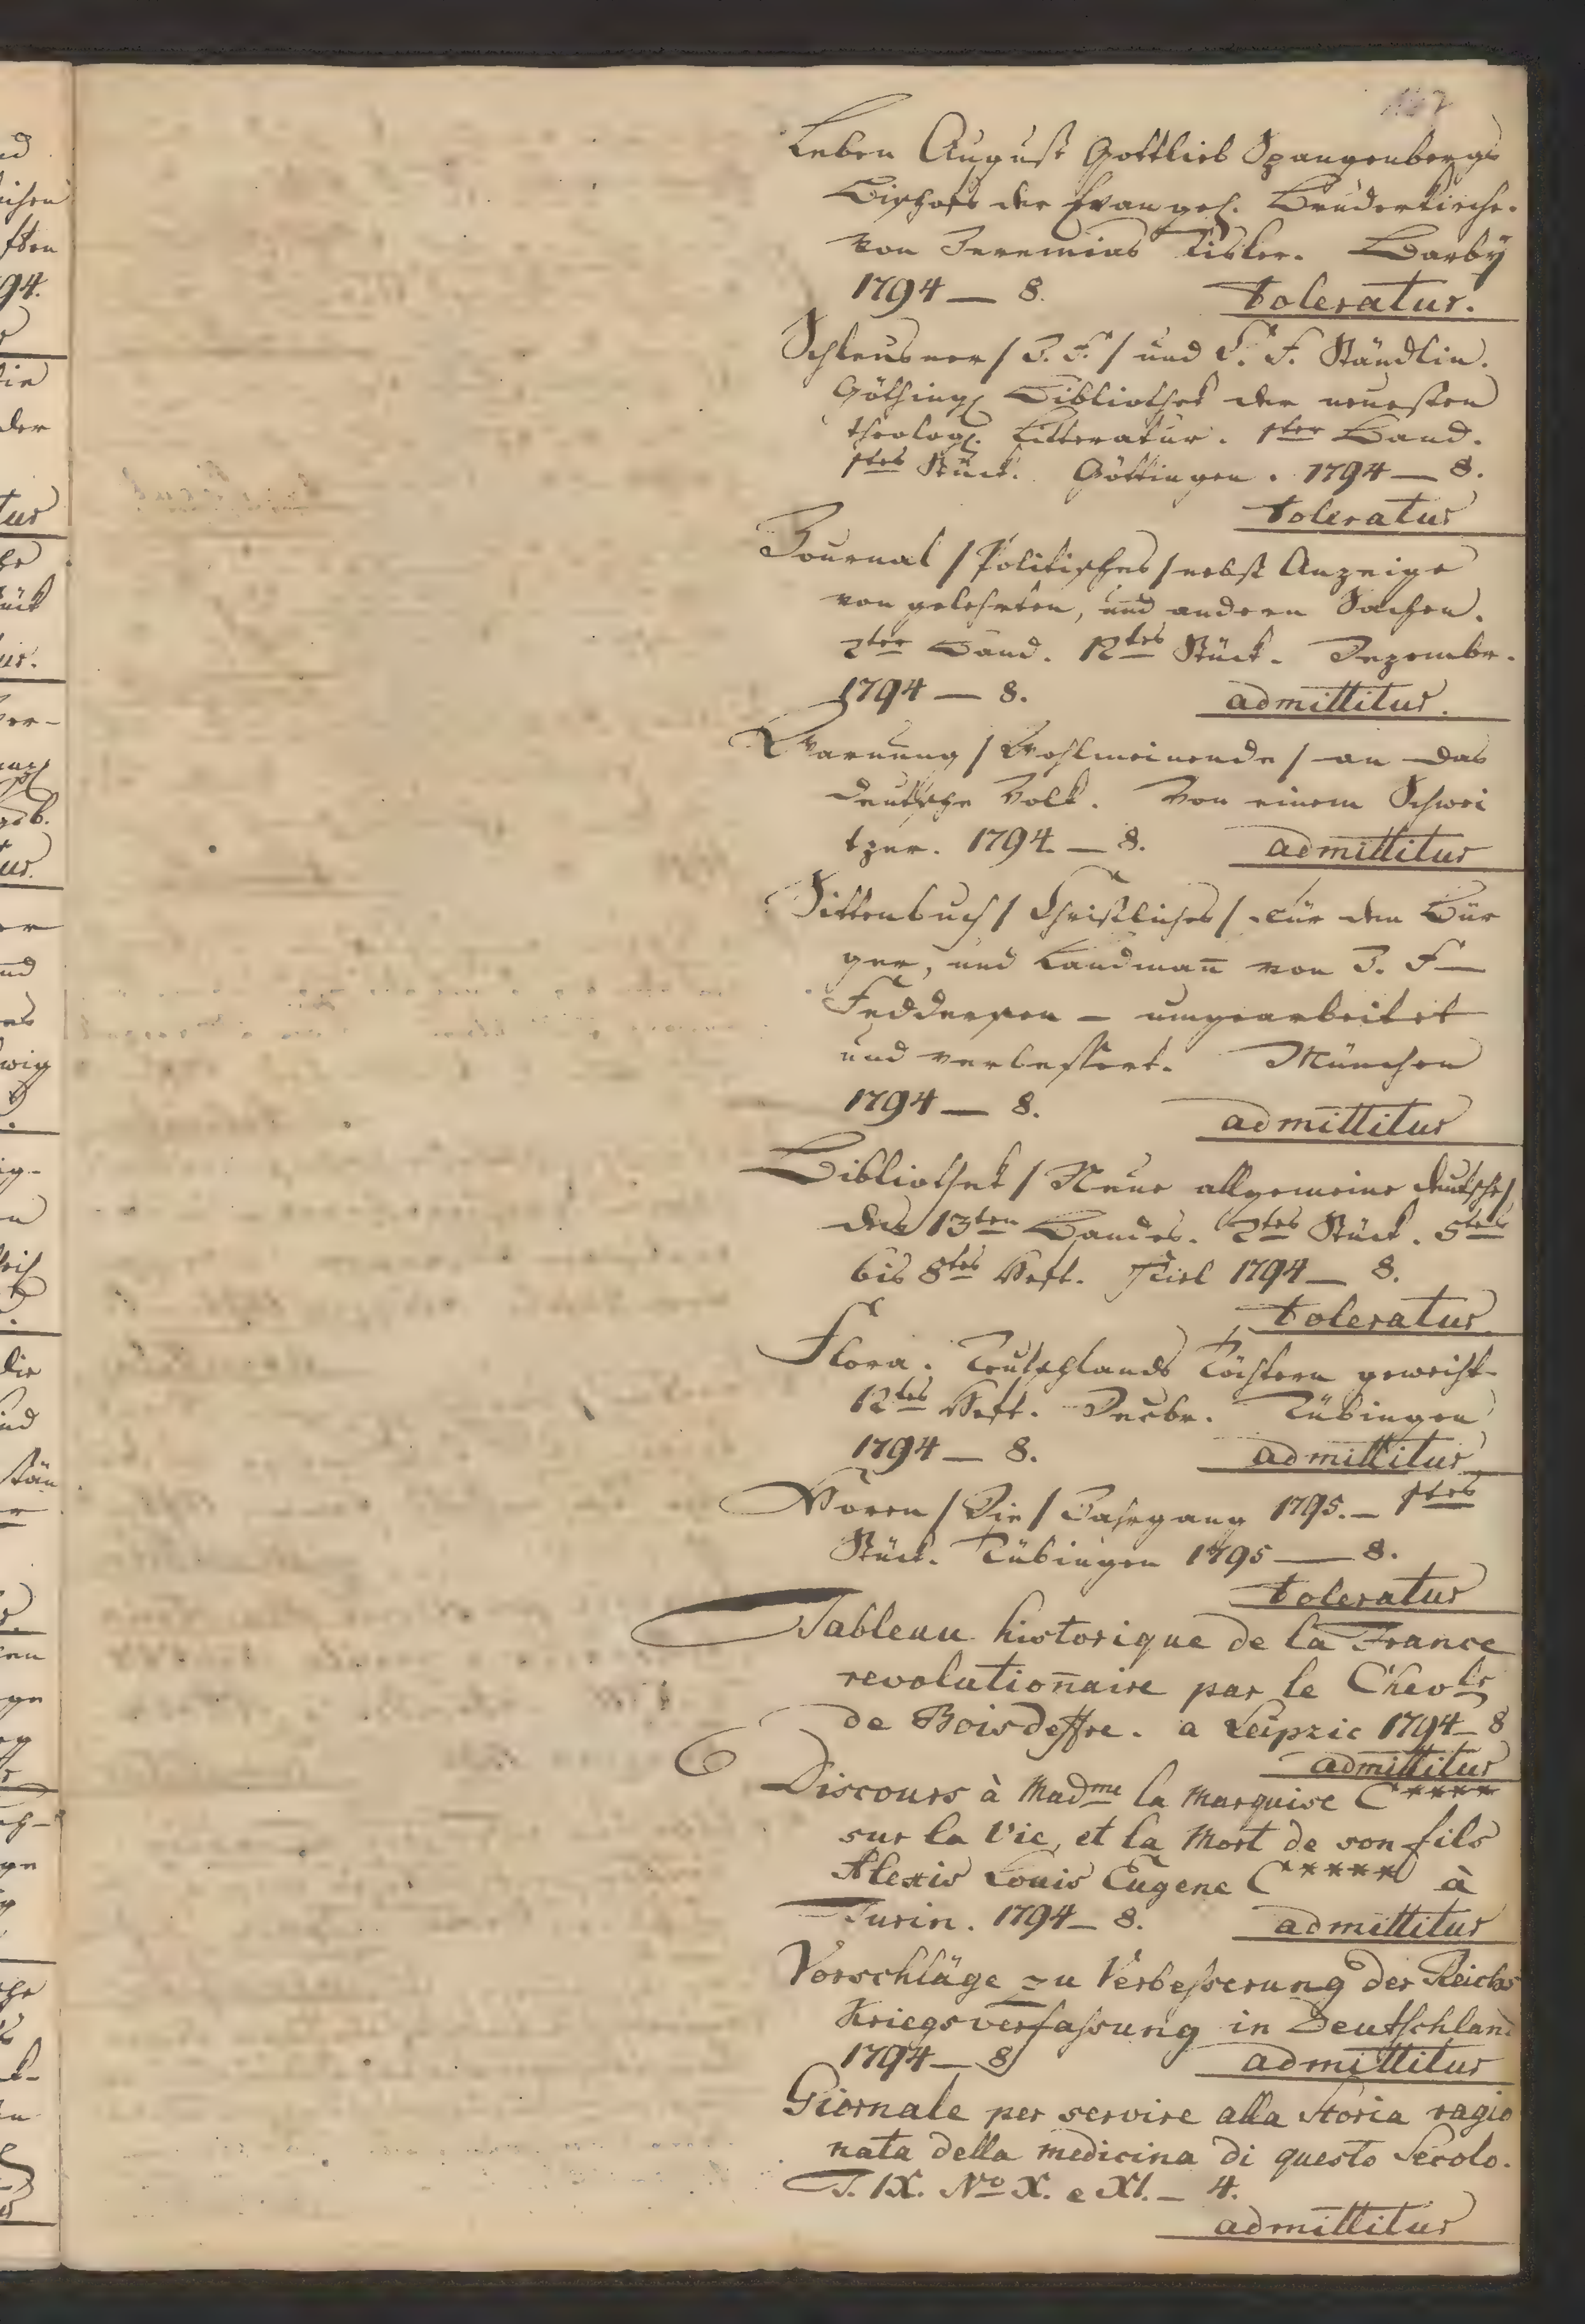 Leben August Gottlieb Spangenbergs
Bischofs der Evangel. Brüderkirche.
von Jeremias Risler. Barbÿ
1794 — 8. toleratur.
Schleusner / J. F. / und C. F. Stäudlin.
Götting. Bibliothek der neuesten
theolog. Litteratur. 1ter Band.
1tes Stück. Göttingen. 1794 — 8.
toleratur
Journal / Politisches / nebst Anzeige
von gelehrten, und andern Sachen.
2ter Band. 12tes Stück. Dezembr.
1794 — 8. admittitur.
Warnung / Wohlmeinende / an das
deutsche Volk. Von einem Schwei
tzer. 1794. — 8. admittitur
Sittenbuch / Christliches / für den Bür
ger, und Landmañ von J. F —
Feddersen — umgearbeitet
und verbessert. München
1794 — 8. admittitur
Bibliothek / Neue allgemeine deutsche /
des 13ten Bandes. 2tes Stück. 5tes
bis 8tes Heft. Kiel 1794 — 8.
toleratur
Flora. Teutschlands Töchtern geweiht
12tes Heft. Decbr. Tübingen
1794 — 8. admittitur
Horen / Die / Jahrgang 1795. — 1tes
Stück. Tübingen 1795 — 8.
toleratur
Tableau historique de la France
revolutioñaire par le Chevlr
de Boisdeffre. a Leipzic 1794 — 8
admittitur
Discours à Madme la Marquise C****
sur la Vie, et la Mort de son fils
Alexis Louis Eugene C***** à
Turin. 1794 — 8. admittitur
Vorschläge zu Verbesserung der Reichs
Kriegsverfassung in Deutschland
1794 — 8 admittitur
Giornale per servire alla Storia ragio
nata della medicina di questo Secolo.
T. IX. No X. e XI. — 4.
admittitur